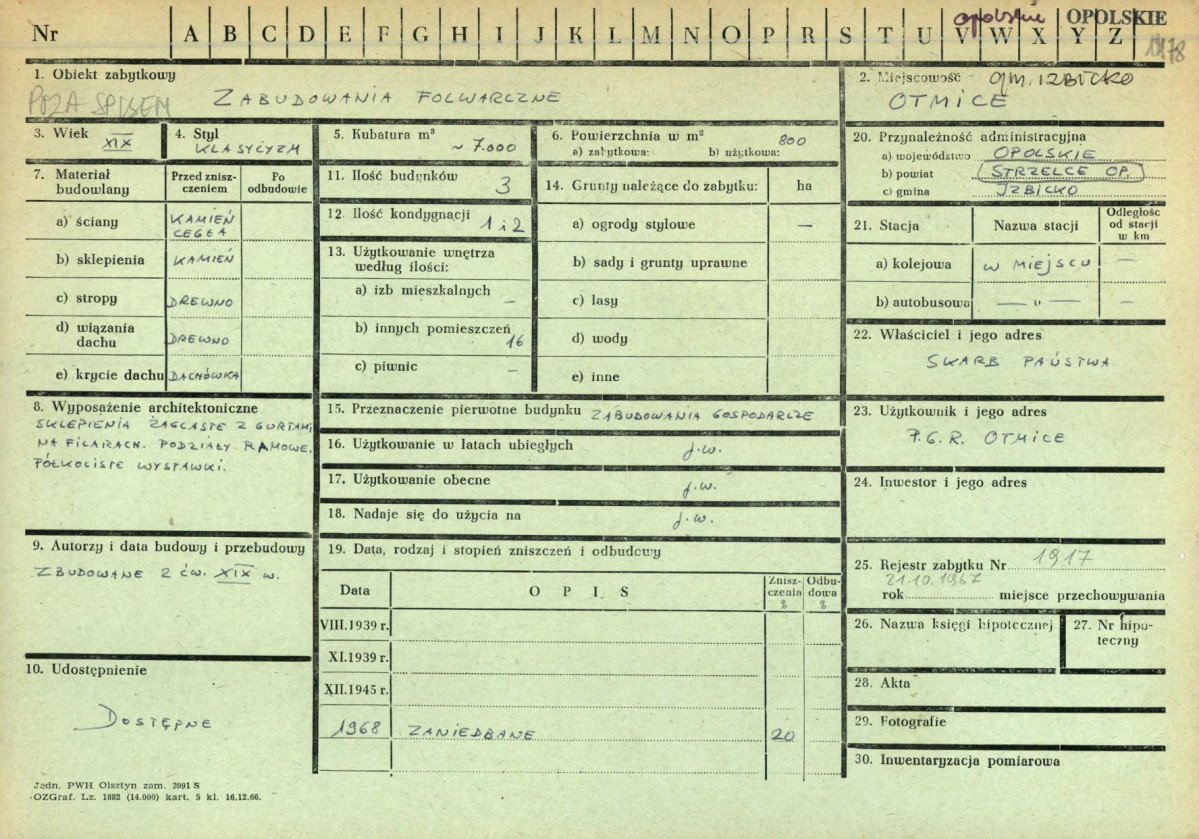 Nr A B C D E F G H I J K L M N O P R S T U V W X Y Z
opolskie OPOLSKIE
1. Obiekt zabytkowy
POZA SPISEM
ZABUDOWANIA FOLWARCZNE
2. Miejscowość gm. IZBICKO
OTMICE
3. Wiek
XIX
4. Styl
KLASYCYZM
5. Kubatura m³
~ 7.000
6. Powierzchnia w m²
a) zabytkowa: b) użytkowa: 800
7. Materiał budowlany
Przed zniszczeniem
Po odbudowie
a) ściany KAMIEŃ CEGŁA
b) sklepienia KAMIEŃ
c) stropy DREWNO
d) wiązania dachu DREWNO
e) krycie dachu DACHÓWKA
8. Wyposażenie architektoniczne
SKLEPIENIA ŻAGLASTE Z GURTAMI
NA FILARACH. PODZIAŁY RAMOWE.
PÓŁKOLISTE WYSTAWKI.
9. Autorzy i data budowy i przebudowy
ZBUDOWANE 2 ĆW. XIX w.
10. Udostępnienie
DOSTĘPNE
11. Ilość budynków
3
12. Ilość kondygnacji
1 i 2
13. Użytkowanie wnętrza
według ilości:
a) izb mieszkalnych –
b) innych pomieszczeń
16
c) piwnic –
14. Grunty należące do zabytku: ha
a) ogrody stylowe –
b) sady i grunty uprawne
c) lasy
d) wody
e) inne
15. Przeznaczenie pierwotne budynku ZABUDOWANIA GOSPODARCZE
16. Użytkowanie w latach ubiegłych j.w.
17. Użytkowanie obecne j.w.
18. Nadaje się do użycia na j.w.
19. Data, rodzaj i stopień zniszczeń i odbudowy
Data
OPIS
Zniszczenia %
Odbudowa %
VIII.1939 r.
XI.1939 r.
XII.1945 r.
1968 ZANIEDBANE 20
20. Przynależność administracyjna
a) województwo OPOLSKIE
b) powiat STRZELCE OP.
c) gmina IZBICKO
21. Stacja
Nazwa stacji
Odległość od stacji w km
a) kolejowa W MIEJSCU –
b) autobusowa — " — –
22. Właściciel i jego adres
SKARB PAŃSTWA
23. Użytkownik i jego adres
P.G.R. OTMICE
24. Inwestor i jego adres
25. Rejestr zabytku Nr 1917
21.10.1967
rok miejsce przechowywania
26. Nazwa księgi hipotecznej
27. Nr hipoteczny
28. Akta
29. Fotografie
30. Inwentaryzacja pomiarowa
Jedn. PWH Olsztyn zam. 3991 S
OZGraf. Lz. 1882 (14.000) kart. 5 kl. 16.12.66.